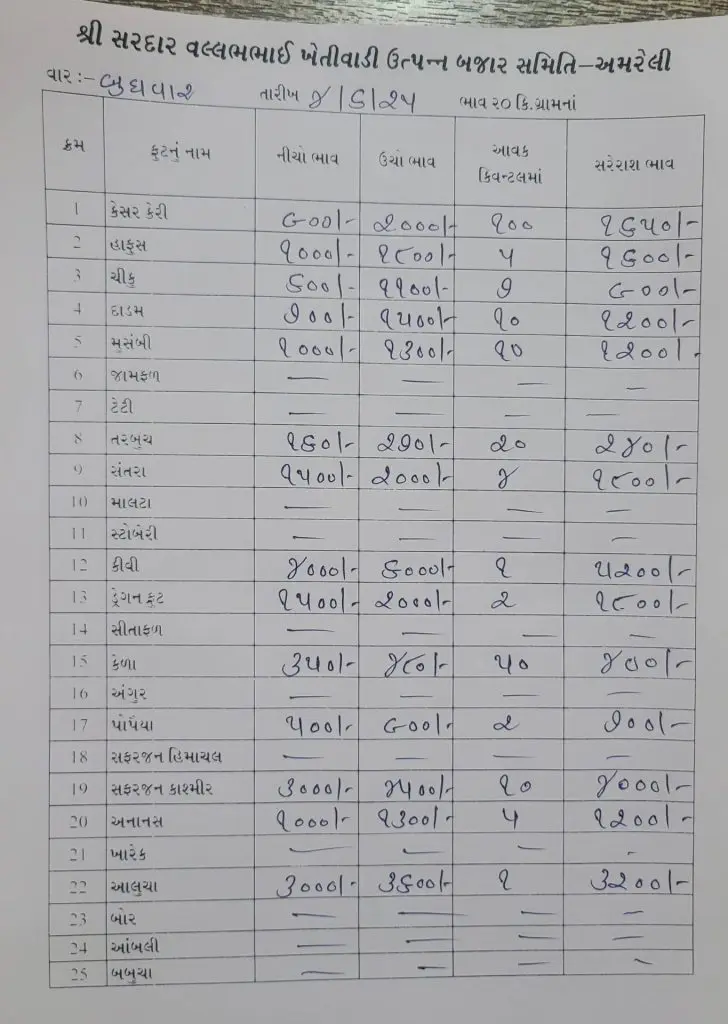 શ્રી સરદાર વલ્લભભાઈ ખેતીવાડી ઉત્પન્ન બજાર સમિતિ-અમરેલી
વાર :- બુધવાર તારીખ ૪/૬/૨૫ ભાવ ૨૦ કિ.ગ્રામનાં
ક્રમ ફ્રુટનું નામ નીચો ભાવ ઉંચો ભાવ આવક કિવન્ટલમાં સરેરાશ ભાવ
1 કેસર કેરી ૯૦૦/- ૨૦૦૦/- ૧૦૦ ૧૬૫૦/-
2 હાફુસ ૧૦૦૦/- ૧૮૦૦/- ૫ ૧૬૦૦/-
3 ચીકુ ૬૦૦/- ૧૧૦૦/- ૭ ૯૦૦/-
4 દાડમ ૭૦૦/- ૧૫૦૦/- ૧૦ ૧૨૦૦/-
5 મુસંબી ૧૦૦૦/- ૧૩૦૦/- ૧૦ ૧૨૦૦/-
6 જામફળ — — — —
7 ટેટી — — — —
8 તરબુચ ૧૬૦/- ૨૭૦/- ૨૦ ૨૪૦/-
9 સંતરા ૧૫૦૦/- ૨૦૦૦/- ૪ ૧૮૦૦/-
10 માલટા — — — —
11 સ્ટોબેરી — — — —
12 કીવી ૪૦૦૦/- ૬૦૦૦/- ૧ ૫૨૦૦/-
13 ડ્રેગન ફ્રુટ ૧૫૦૦/- ૨૦૦૦/- ૨ ૧૮૦૦/-
14 સીતાફળ — — — —
15 કેળા ૩૫૦/- ૪૮૦/- ૫૦ ૪૦૦/-
16 અંગુર — — — —
17 પોપૈયા ૫૦૦/- ૯૦૦/- ૨ ૭૦૦/-
18 સફરજન હિમાચલ — — — —
19 સફરજન કાશ્મીર ૩૦૦૦/- ૪૫૦૦/- ૧૦ ૪૦૦૦/-
20 અનાનસ ૧૦૦૦/- ૧૩૦૦/- ૫ ૧૨૦૦/-
21 ખારેક — — — -
22 આલુચા ૩૦૦૦/- ૩૬૦૦/- ૧ ૩૨૦૦/-
23 બોર — — — —
24 આંબલી — — — —
25 બબુચા — — — —